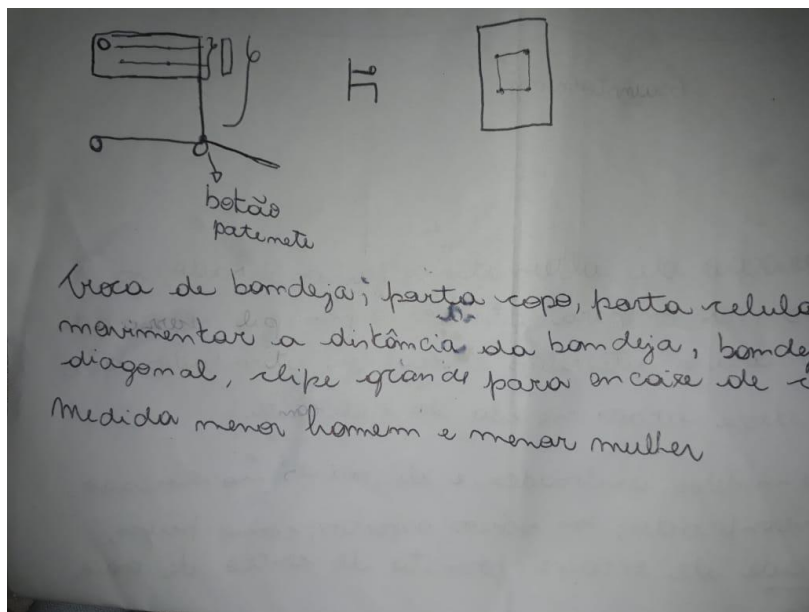 botão
patinete
troca de bandeja; porta copo, porta celula
movimentar a distância da bandeja, bande
diagonal, clipe grande para encaixe de
medida menor homem e menor mulher